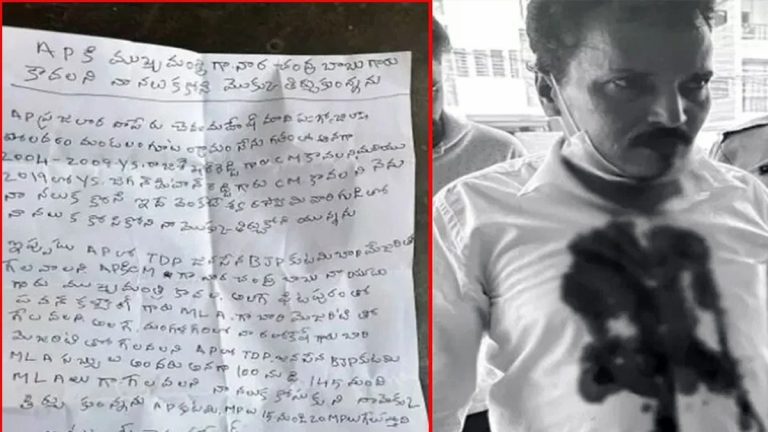 APకి ముఖ్యమంత్రిగా నారా చంద్రబాబు గారు
కావాలని నా నలుక కోసి మొక్కు తీర్చుకుంన్నను
AP ప్రజలారా నా పేరు చెవల మహేష్ మాది ప.గో.జిల్లా
మండలం గూట గ్రామం నేను గతంలో అనగా
2004-2009 YS. రాజశేఖర్ రెడ్డి గారు CM కావాలని మరియు
2019 లో YS. జగన్ మోహన్ రెడ్డి గారు CM కావాలని నేను
నా నలుక కోసి ఇదే వెంకటేశ్వర స్వామి వారి గుడిలో
నా నలుక కోసికోని నా మొక్కు తీర్చుకోని యున్నను
ఇప్పుడు AP లో TDP జనసేన BJP కుటమి బారి మేజారితో
గేలవాలని APకి CM గా నారా చంద్ర బాబు నాయుడు
గారు ముఖ్యమంత్రి కావాల, అలాగే పిటపురంలో
పవన్ కళ్యాణ్ గారు MLA గా బారి మెజారిటితో
గేలవలని అలాగే, మంగళగిరిలో నారా లోకేష్ గారు బారి
మెజారిటితో గేలవలని AP లో TDP, జనసేన BJP కుటమి
MLA అందరు అనగా 100 నుండి 145 మంది
MLA లు గా గెలవలని నా నలుక కోసుకుని నా మొక్కు
తీర్చు కుంన్నను AP కుటమి, MPలు 15 నుండి 20 MPలు